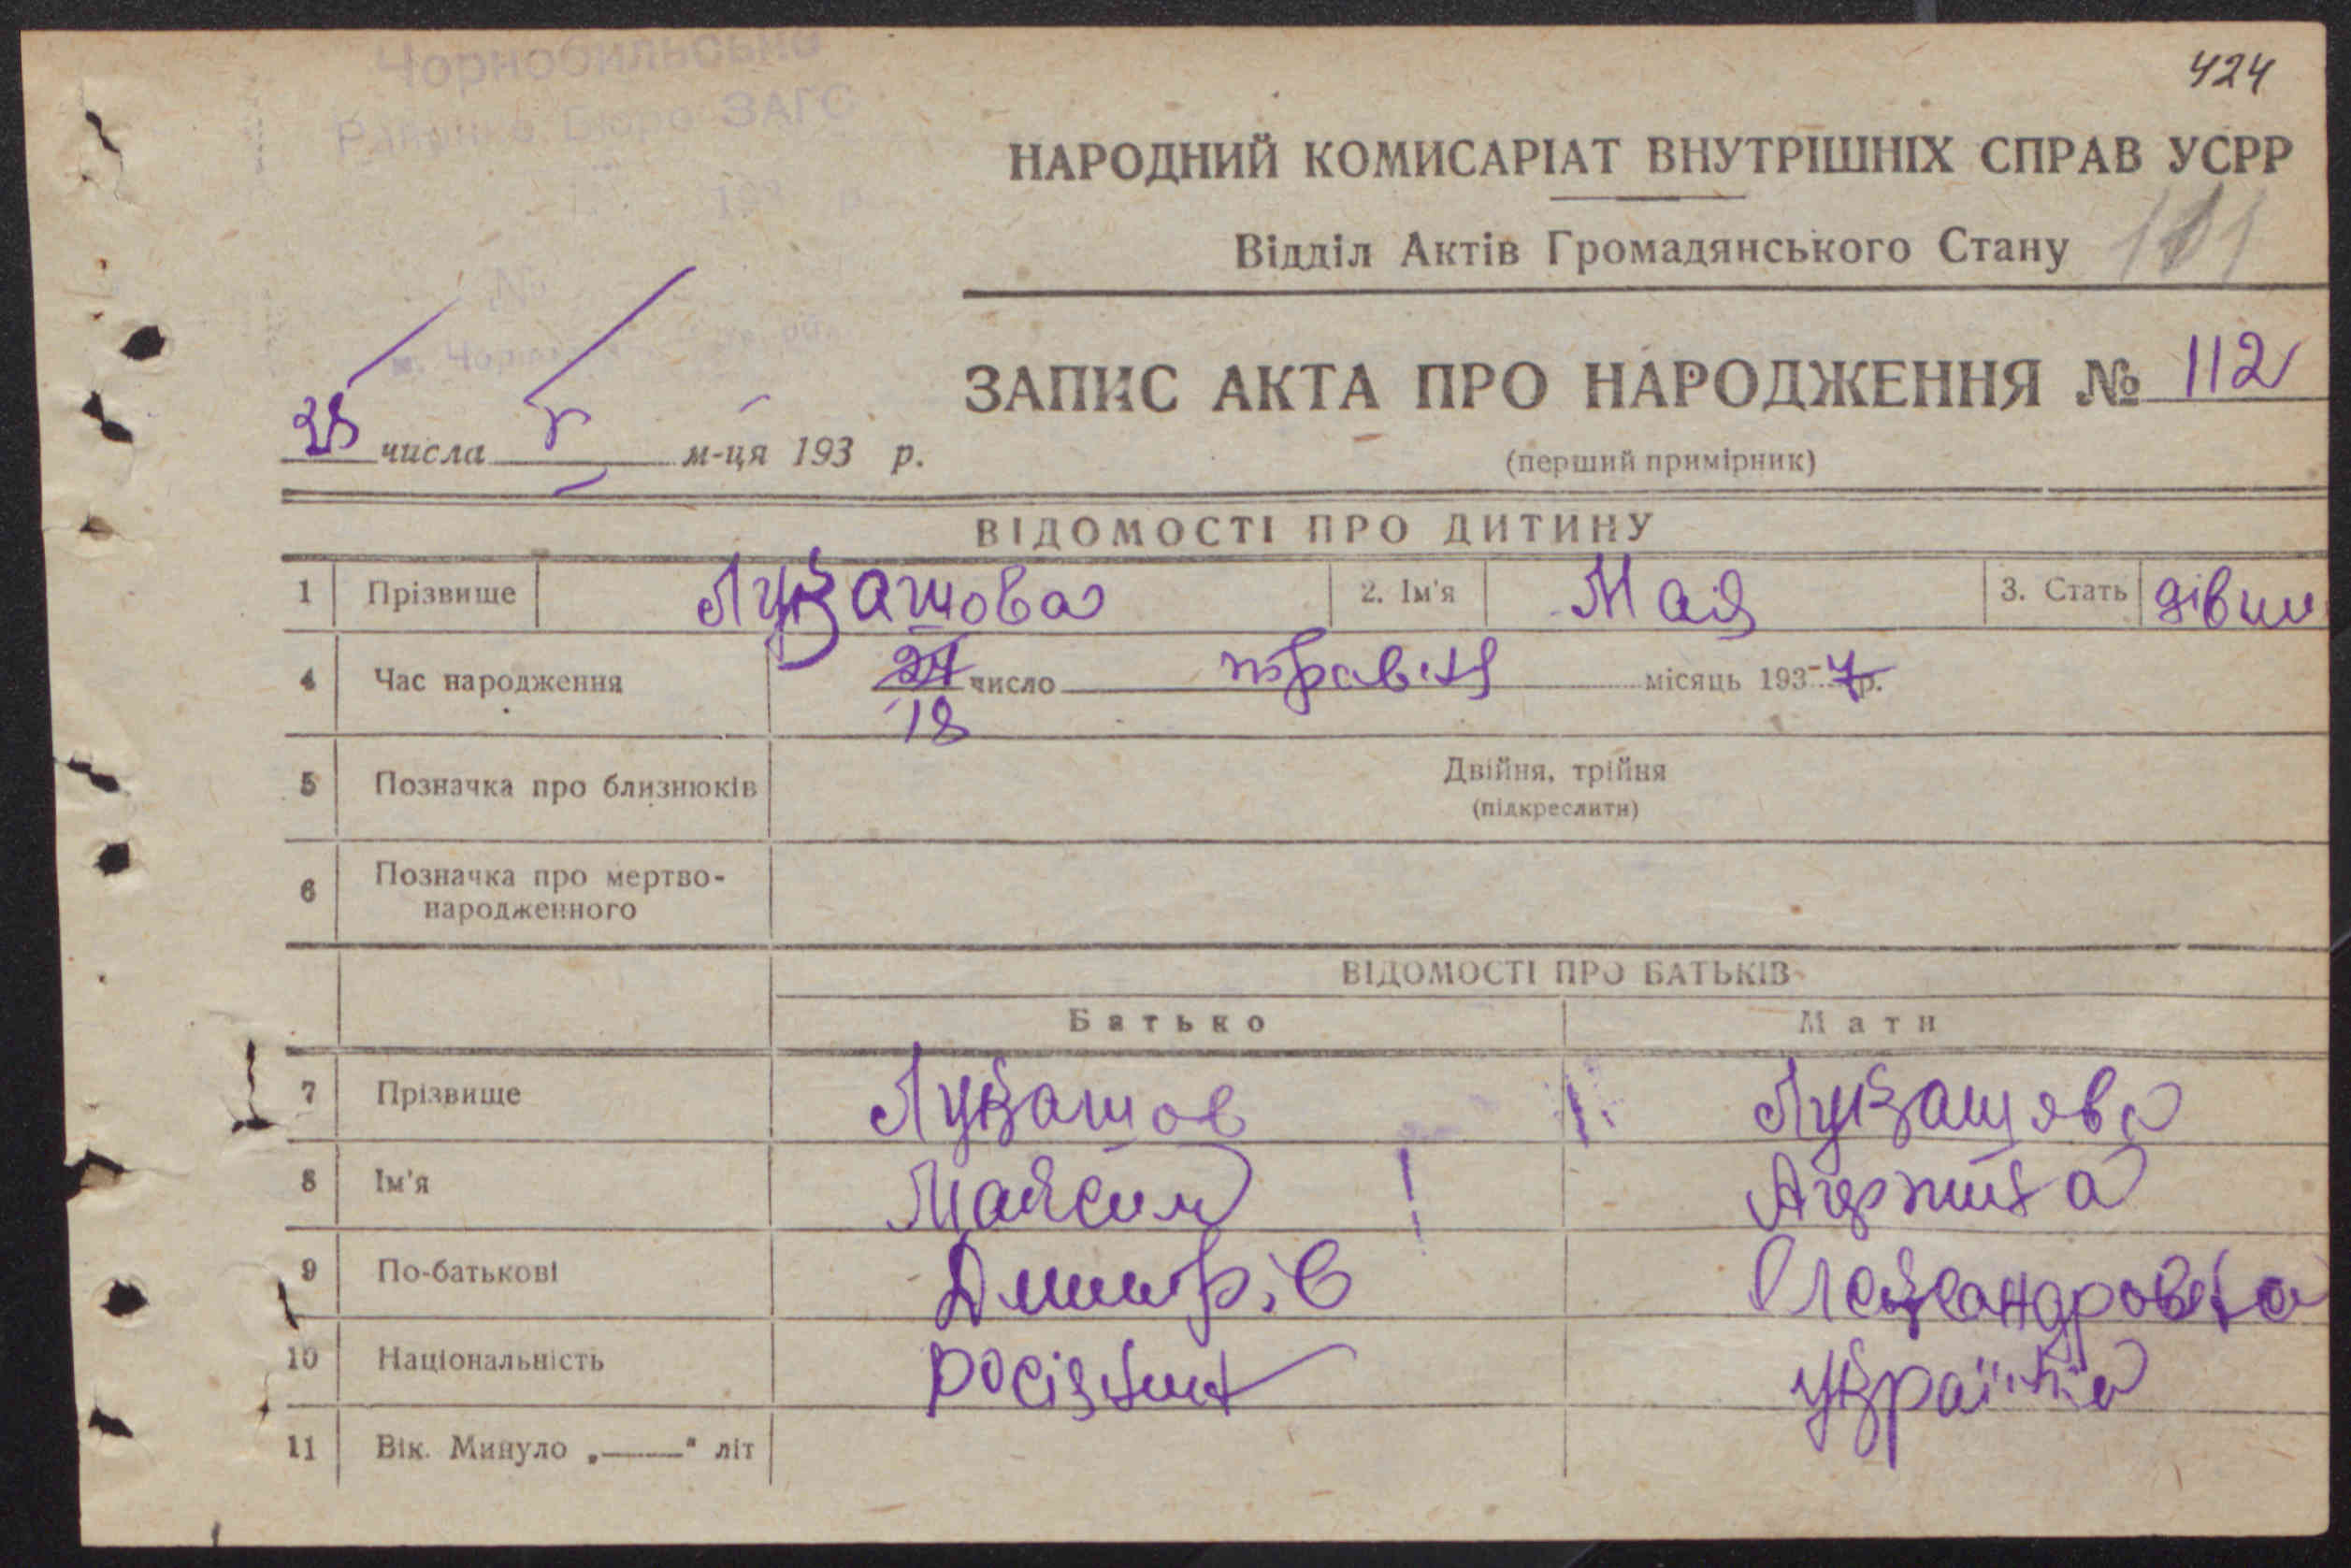 Чорнобильське
Бюро ЗАГС
424
НАРОДНИЙ КОМИСАРІАТ ВНУТРІШНІХ СПРАВ УСРР
Відділ Актів Громадянського Стану
ЗАПИС АКТА ПРО НАРОДЖЕННЯ № 112
(перший примірник)
числа м-ця 193 р.
ВІДОМОСТІ ПРО ДИТИНУ
1 Прізвище Лукашова 2. Ім'я Мая 3. Стать дівч
4 Час народження 27 число травня місяць 1937 р.
18
5 Позначка про близнюків Двійня, трійня
(підкреслити)
6 Позначка про мертво-
народженного
ВІДОМОСТІ ПРО БАТЬКІВ
Батько Мати
7 Прізвище Лукашов Лукашова
8 Ім'я Максим
9 По-батькові Дмитрів Олександровна
10 Національність росіянин українка
11 Вік. Минуло „——“ літ